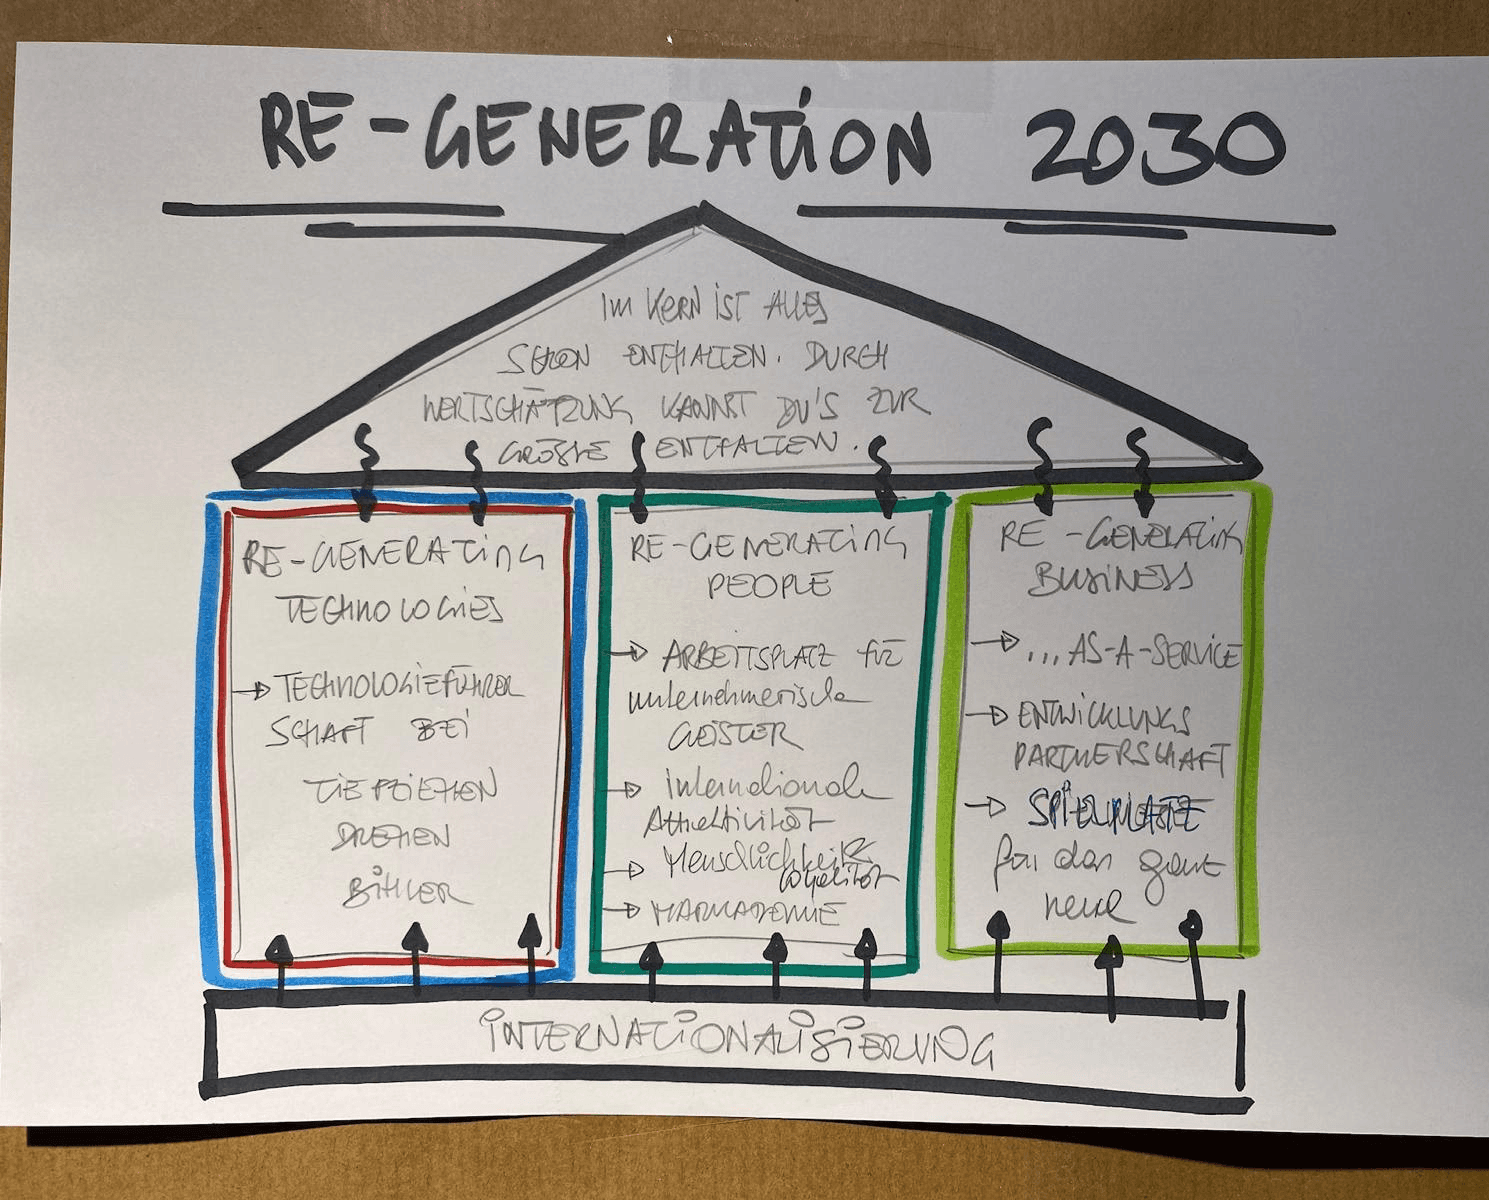 RE-GENERATION 2030
IM KERN IST ALLES
SCHON ENTHALTEN. DURCH
WERTSCHÄTZUNG KANNST DU'S ZUR
GRÖSSE ENTFALTEN.
RE-GENERATING
TECHNOLOGIES
→ TECHNOLOGIEFÜHRER
SCHAFT BEI
TIEFZIEHEN
DREHEN
RE-GENERATING
PEOPLE
→ ARBEITSPLATZ FÜR
unternehmerische
GEISTER
→ internationale
Attraktivität
→ Menschlichkeit
Loyalität
RE-GENERATING
BUSINESS
→ ...AS-A-SERVICE
→ ENTWICKLUNGS
PARTNERSCHAFT
→ SPIELPLÄTZE
für das ganz
neue
INTERNATIONALISIERUNG